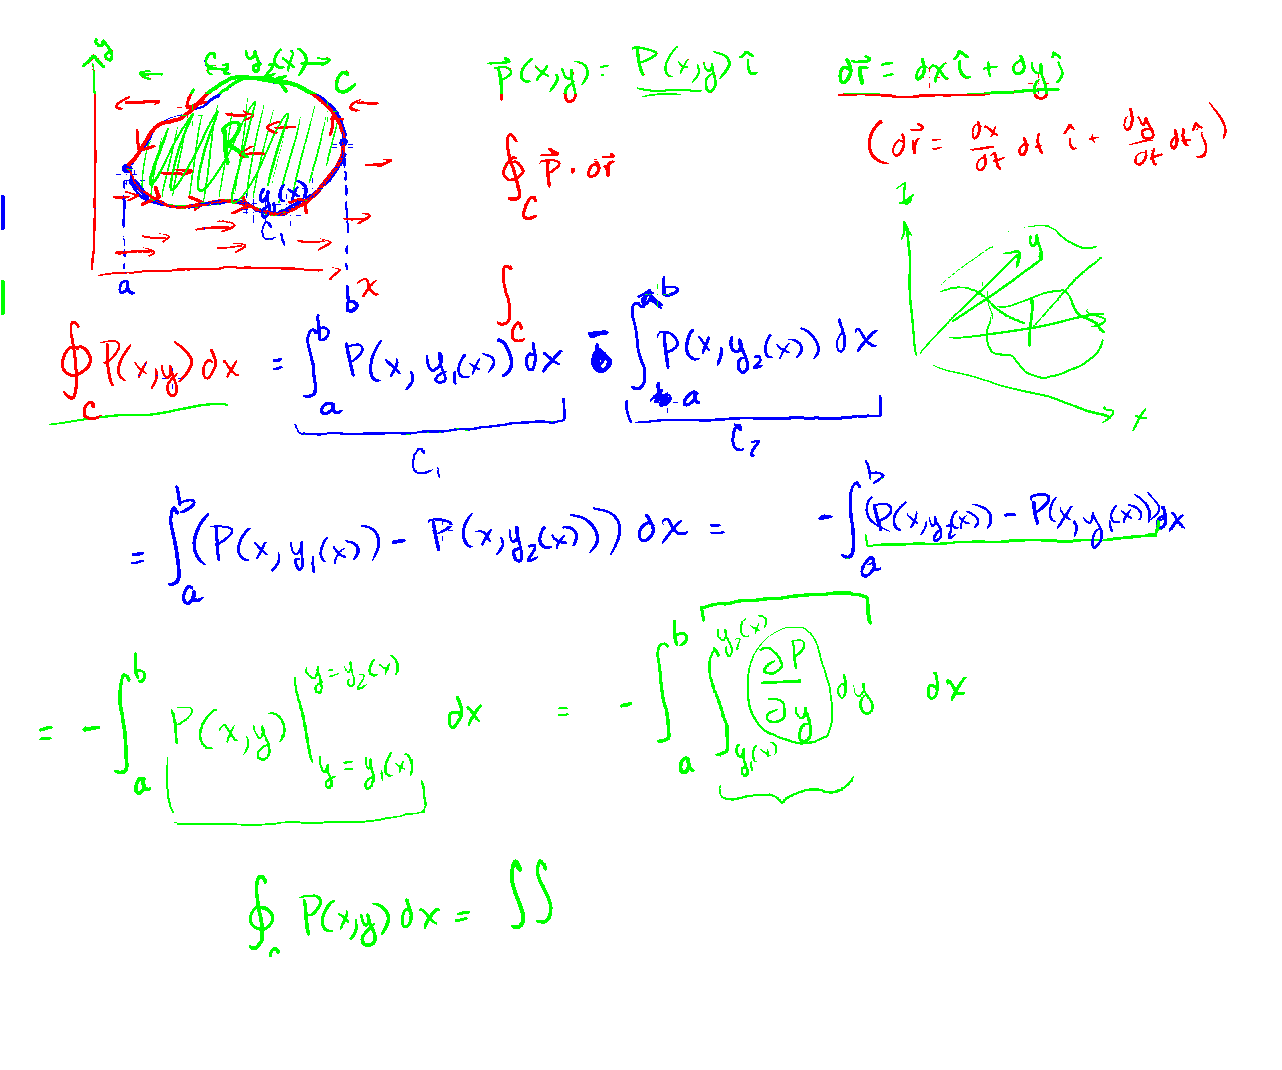 y
C₂ y₂(x)
C
R
y₁(x)
C₁
a
b x
P⃗(x,y) = P(x,y) î
dr⃗ = dx î + dy ĵ
∮_C P⃗ · dr⃗
(dr⃗ = dx/dt dt î + dy/dt dt ĵ)
z
y
x
∫_C
∮_C P(x,y) dx = ∫_a^b P(x, y₁(x)) dx - ∫_a^b P(x, y₂(x)) dx
C₁
C₂
= ∫_a^b (P(x, y₁(x)) - P(x, y₂(x))) dx = - ∫_a^b (P(x, y₂(x)) - P(x, y₁(x))) dx
= - ∫_a^b P(x,y) |_{y = y₁(x)}^{y = y₂(x)} dx = - ∫_a^b ∫_{y₁(x)}^{y₂(x)} ∂P/∂y dy dx
∮_c P(x,y) dx = ∫∫